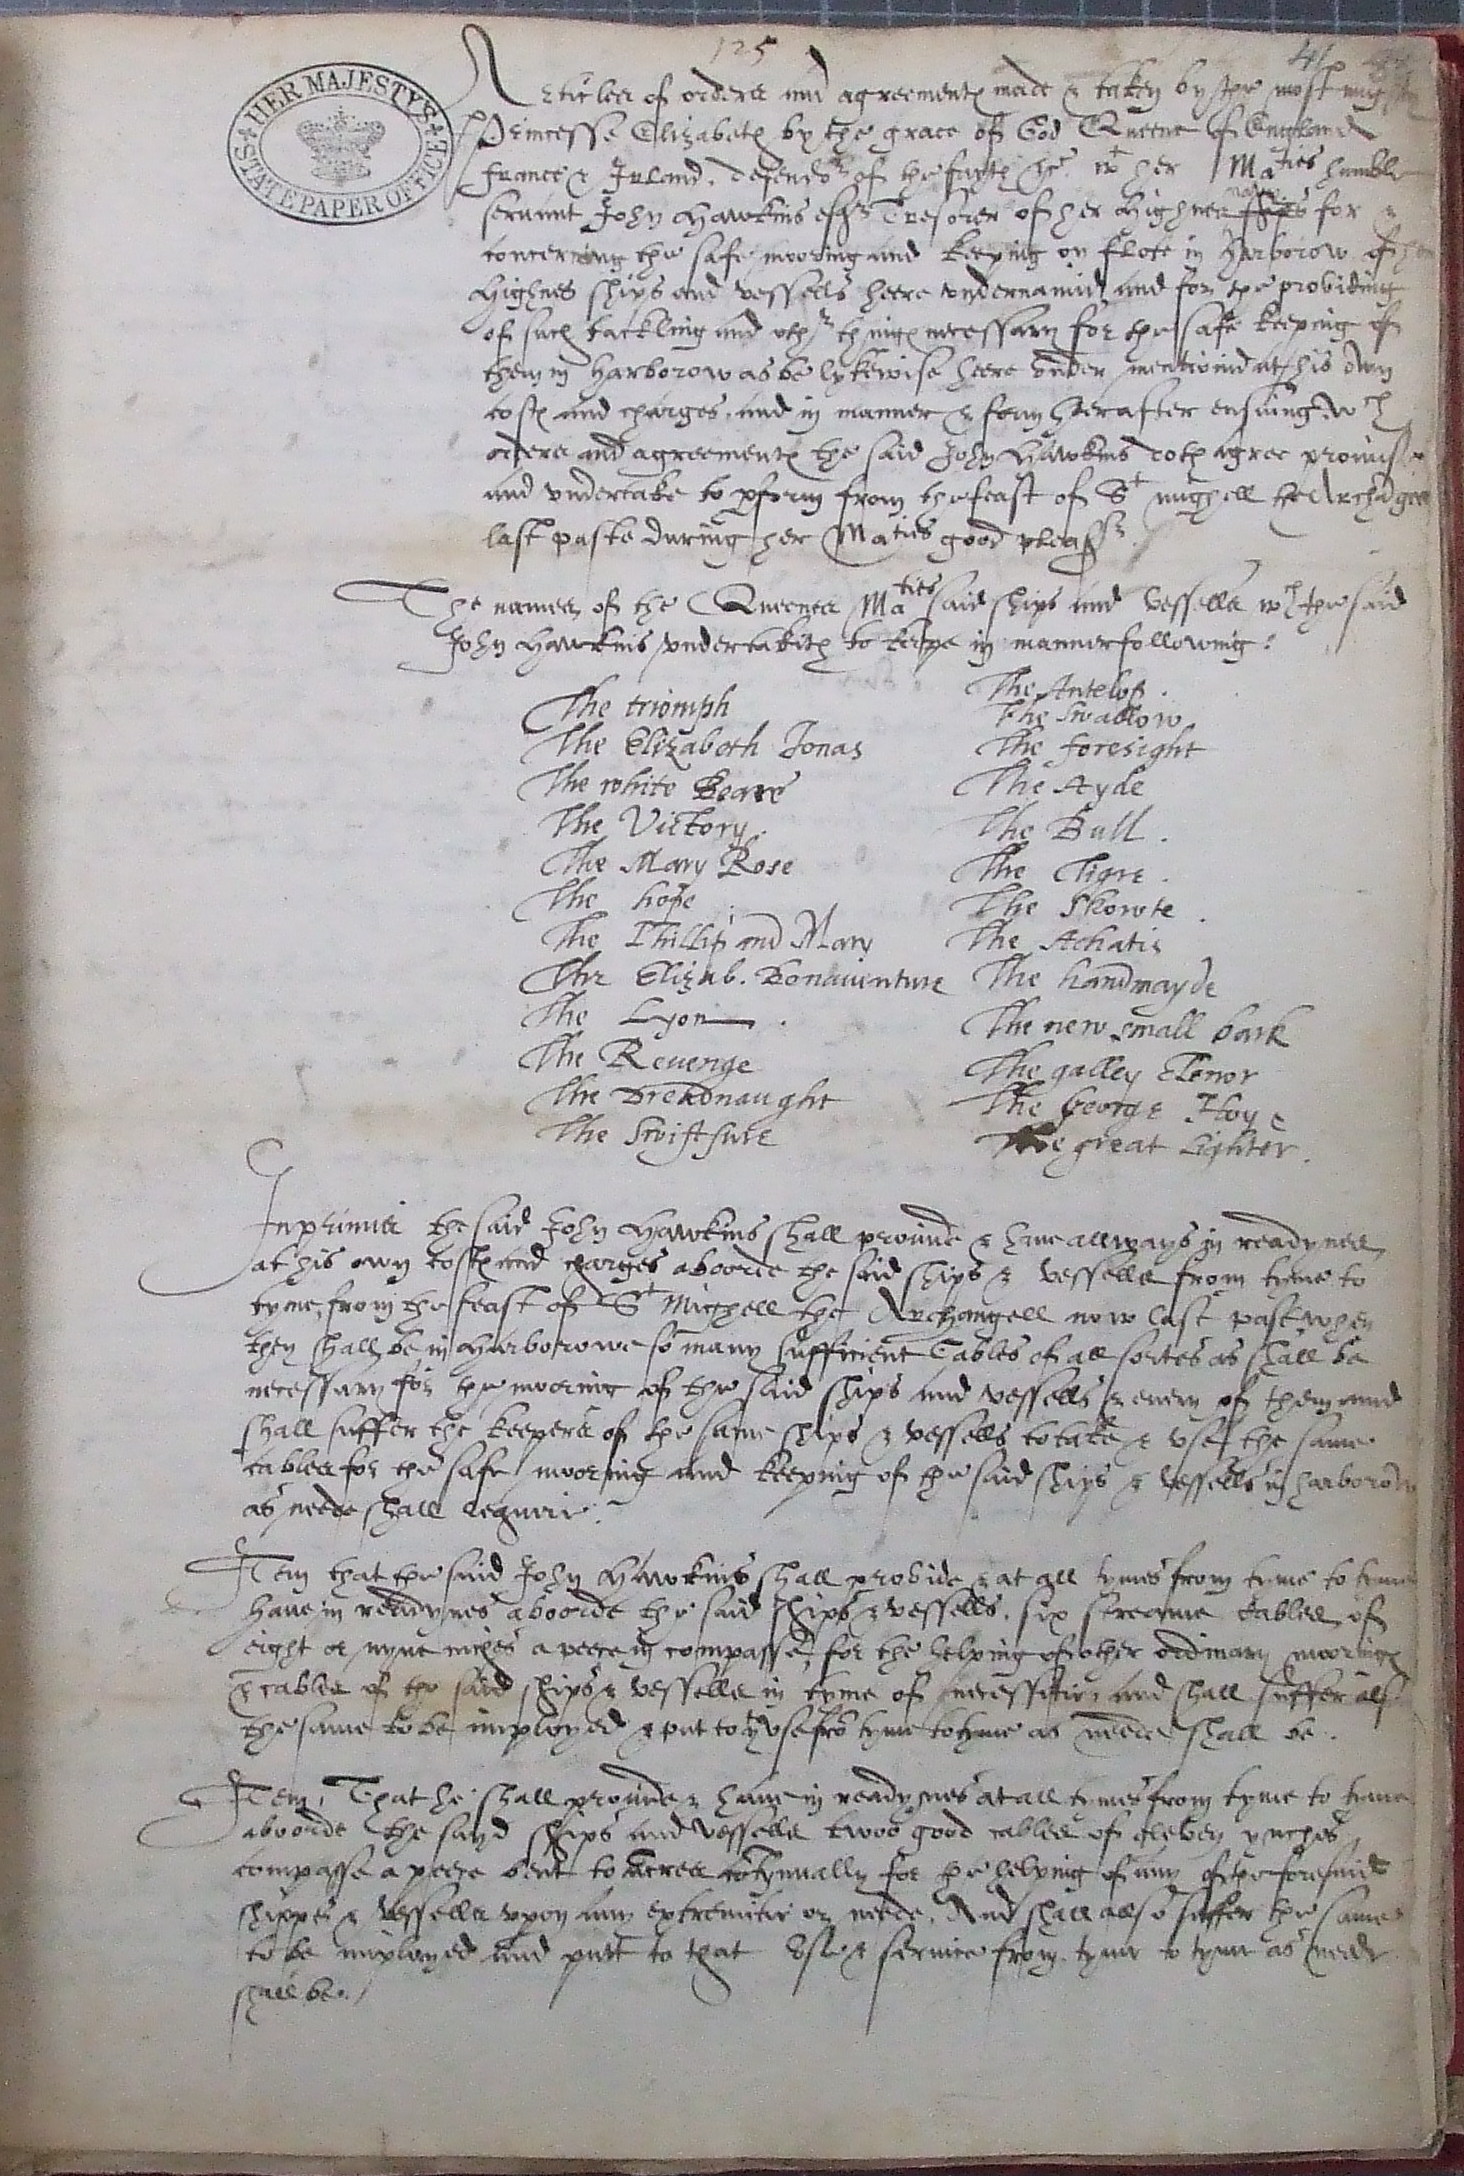 125
41
HER MAJESTYS
STATE PAPER OFFICE
Articles of orders and agreementes made & taken by the most mighty
Princesse Elizabeth by the grace of God Queene of England
France & Irland. defendor of the fayth &c. wt her Maties humble
servant John Hawkins esqr Tresorer of her Highnes navye ships for &
concerning the safe mooring and keeping on flote in Harborow of her
Highnes ships and vessells heere undernamid and for the providing
of such tackling and othr thinges necessary for the safe keeping of
them in Harborow as be lykewise heere under mentionid at his own
costes and charges, and in manner & form herafter ensuing. wch
orders and agreementes the said John Hawkins doth agree promise
and undertake to pform from the feast of St mighell the Archangell
last paste during her Maties good pleasr.
The names of the Queenes Maties said ships and Vessells wch the said
John Hawkins undertakith to keepe in manner following:
The triomph
The Elizabeth Jonas
The white Beare
The Victory.
The Mary Rose
The hope
The Phillip and Mary
The Elizab. Bonauenture
The Lyon
The Reuenge
The Dreadnaught
The Swiftsure
The Antelop.
The Swallow
The foresight
The Ayde
The Bull.
The Tigre.
The Skowte.
The Achatis
The handmayde
The new small bark
The galley Elenor
The George Hoye
The great Lighter.
Inprimis the said John Hawkins shall provide & have allways in readynes
at his own costes and charges aboorde the said ships & vessells from tyme to
tyme, from the feast of St Mighell the Archangell now last past when
they shall be in Harborowe so many sufficient Cables of all sortes as shall be
necessary for the mooring of the said ships and vessells & every of them and
shall suffer the keepers of the same ships & vessells to take & use the same
cables for the safe mooring and keeping of the said ships & vessells in harborow
as neede shall require.
Item that the said John Hawkins shall provide & at all tymes from tyme to tyme
have in readynes aboorde the said ships & vessells, six streame cables of
eight or nyne inches a peece in compasse, for the helping of other ordinary mooringes
& cables of the said ships & vessells in tyme of necessitie, and shall suffer also
the same to be imployed & put to yt use fro tyme to tyme as neede shall be.
Item, That he shall provide & have in readynes at all tymes from tyme to tyme
aboorde the sayd ships and vessells twoo good cables of eleven ynches
compasse a peece bent to ancres cotynually for the helping of any of the foresaid
shippes & vessells upon any extremitie or neede, And shall allso suffer the same
to be imployed and putt to that use & service from tyme to tyme as neede
shall be./